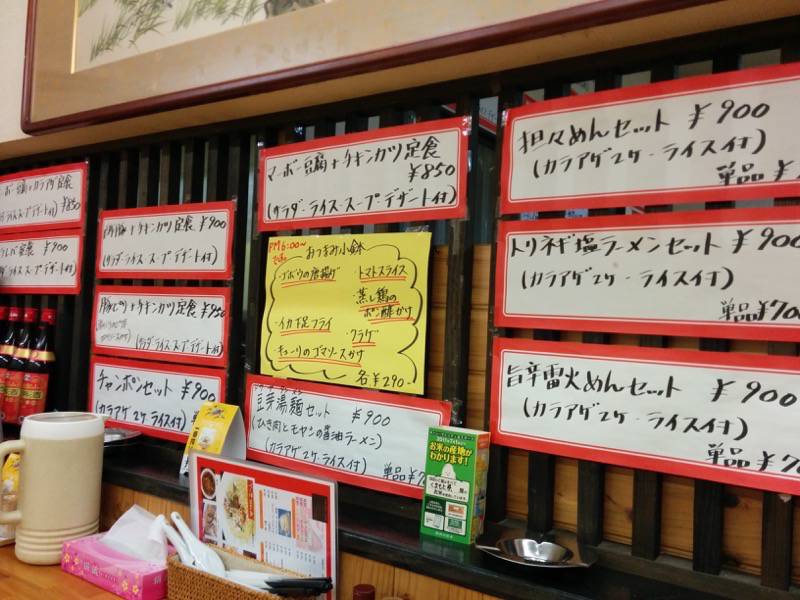 定食
¥850
ライス・スープ・デザート付)
定食 ¥900
+チキンカツ定食 ¥900
(サラダ・ライス・スープ・デザート付)
+チキンカツ定食 ¥950
(サラダ・ライス・スープ・デザート付)
チャンポンセット ¥900
(カラアゲ2ケ・ライス付)
マーボー豆腐+チキンカツ定食
¥850
(サラダ・ライス・スープ・デザート付)
PM6:00~
おつまみ小鉢
・ゴボウの唐揚げ
・トマトスライス
・蒸し鶏の
ポン酢かけ
・イカ下足フライ
・クラゲ
・キューリのゴマソースかけ
各¥290-
豆芽湯麺セット ¥900
(ひき肉とモヤシの醤油ラーメン)
(カラアゲ2ケ・ライス付)
単品¥7
担々めんセット ¥900
(カラアゲ2ケ・ライス付)
単品¥
トリネギ塩ラーメンセット ¥900
(カラアゲ2ケ・ライス付)
単品¥700
旨辛雷火めんセット ¥900
(カラアゲ2ケ・ライス付)
単品¥7
お米の産地が
わかります!